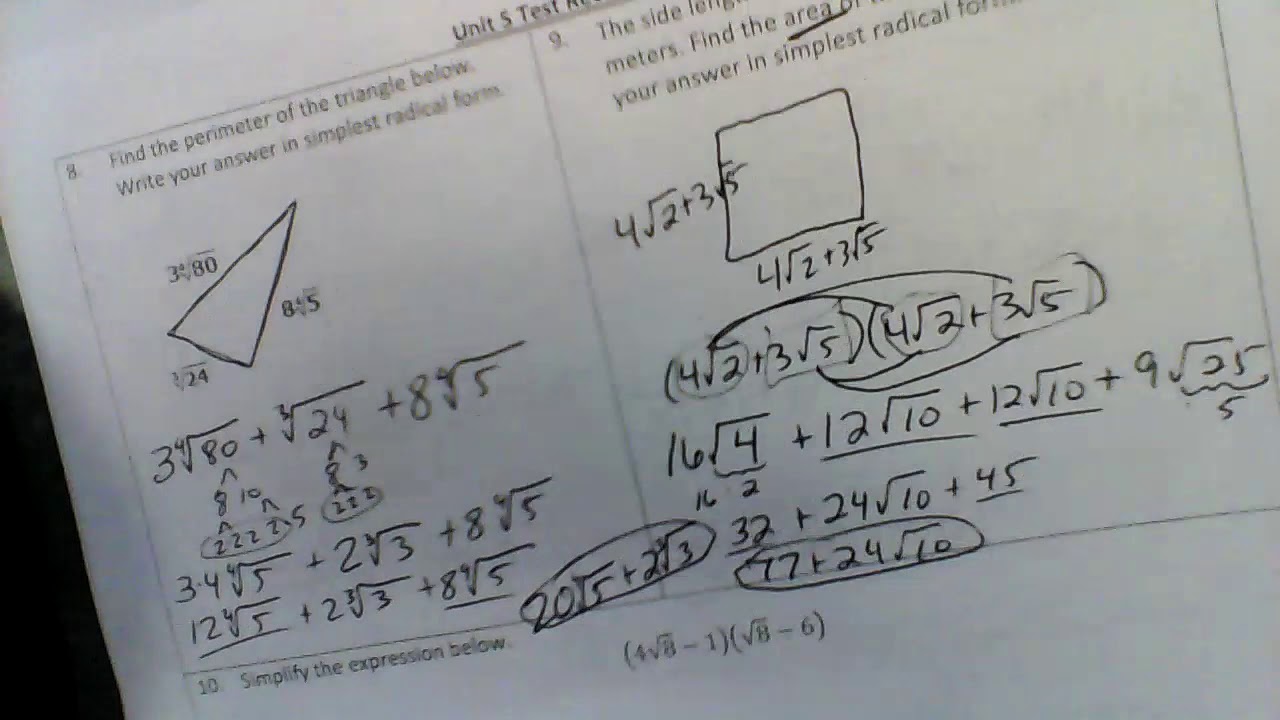 Unit 5 Test
8. Find the perimeter of the triangle below.
Write your answer in simplest radical form.
3∜80
8∜5
∛24
3∜80 + ∛24 + 8∜5
8 10 8 3
2 2 2 2 5 2 2 2
3·4∜5 + 2∛3 + 8∜5
12∜5 + 2∛3 + 8∜5
20∜5 + 2∛3
9. The side
meters. Find the area
your answer in simplest radical
4√2+3√5
4√2+3√5
(4√2+3√5)(4√2+3√5)
16√4 + 12√10 + 12√10 + 9√25
16 2 5
32 + 24√10 + 45
77+24√10
10. Simplify the expression below.
(4√8 − 1)(√8 − 6)